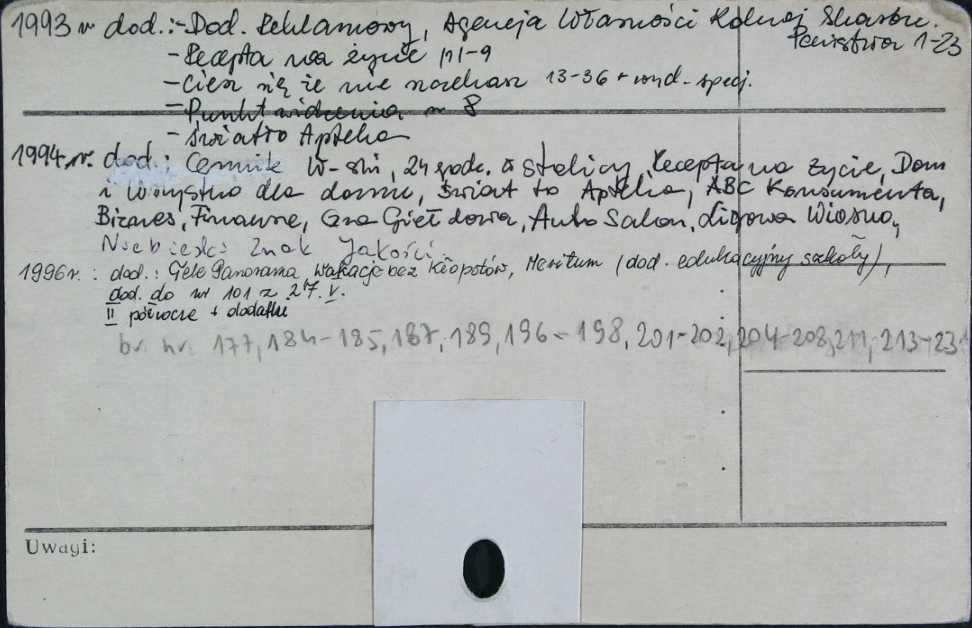 1993 r dod.: - Dod. Reklamowy, Agencja Własności Rolnej Skarbu
Państwa 1-23
- Recepta na życie 1-9
- Ciesz się że nie 13-36 + wyd. specj.
- Punkt widzenia nr 8
- Świat to Apteka
1994 r. dod.: Cennik W-ski, 24 godz. w stolicy, Recepta na życie, Dom
i wszystko dla domu, Świat to Apteka, ABC Konsumenta,
Biznes, Finanse, Giełdowa, Auto Salon, Ligowa Wiosna,
Niebieski Znak Jakości
1996 r.: dod.: Tele Panorama, Wakacje bez kłopotów, Meritum (dod. edukacyjny szkoły),
dod. do nr 101 z 27. V.
II półrocze + dodatki
br. nr. 177, 184-185, 187, 189, 196-198, 201-202, 204-208, 211, 213-23
Uwagi: